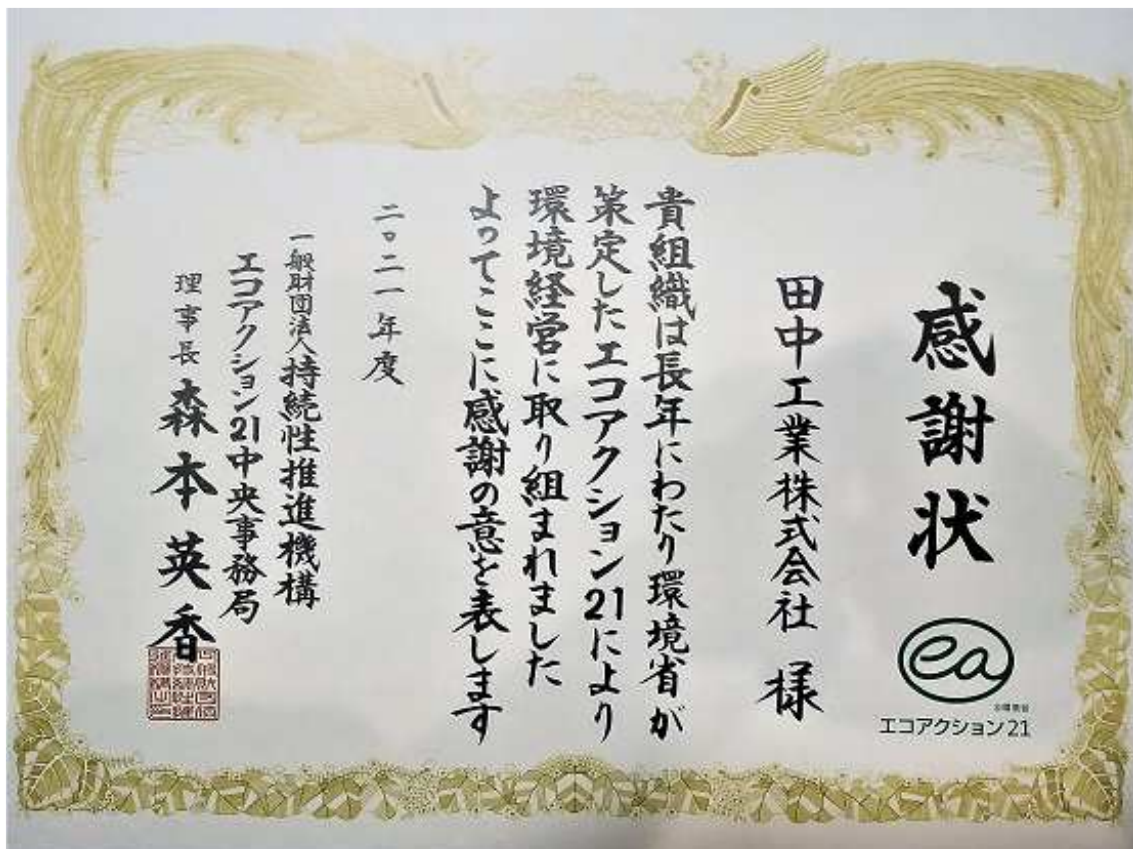 感謝状
ea
©環境省
エコアクション21
田中工業株式会社 様
貴組織は長年にわたり環境省が
策定したエコアクション21により
環境経営に取り組まれました
よってここに感謝の意を表します
二〇二一年度
一般財団法人持続性推進機構
エコアクション21中央事務局
理事長 森本英香